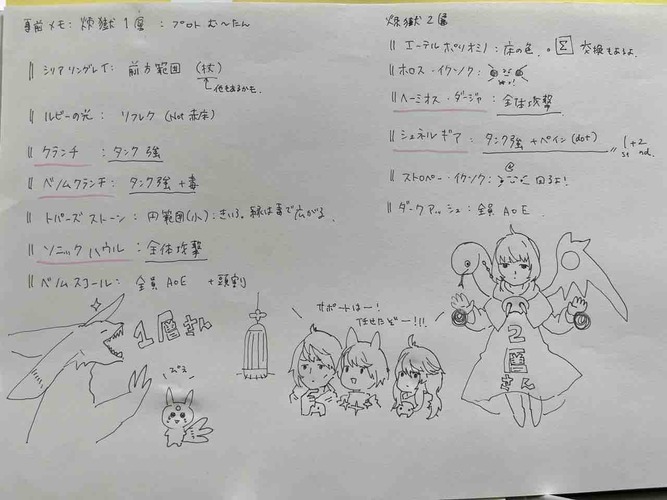 事前メモ: 煉獄1層: プロト む〜たん
シリアリングレイ: 前方範囲 (杖)
↑他もあるかも.
ルビーの光: リフレク (Not 赤床)
クランチ: タンク強
ベノムクランチ: タンク強+毒
トパーズストーン: 円範囲(小): きいろ。緑は毒で広がる。
ソニックハウル: 全体攻撃
ベノムスコール: 全員 AoE +頭割り
1層さん
煉獄2層
エーテルポリオミノ: 床の色. 交換もあるよ.
ホロス・イクソク:
ヘーミオス・ダージャ: 全体攻撃.
シュネルギア: タンク強+ペイン(dot) 1st+2nd.
ストロペー・イクソク: 回るよ!
ダークアッシュ: 全員 AoE.
サポートはー!
任せたぞー!!!
2層さん